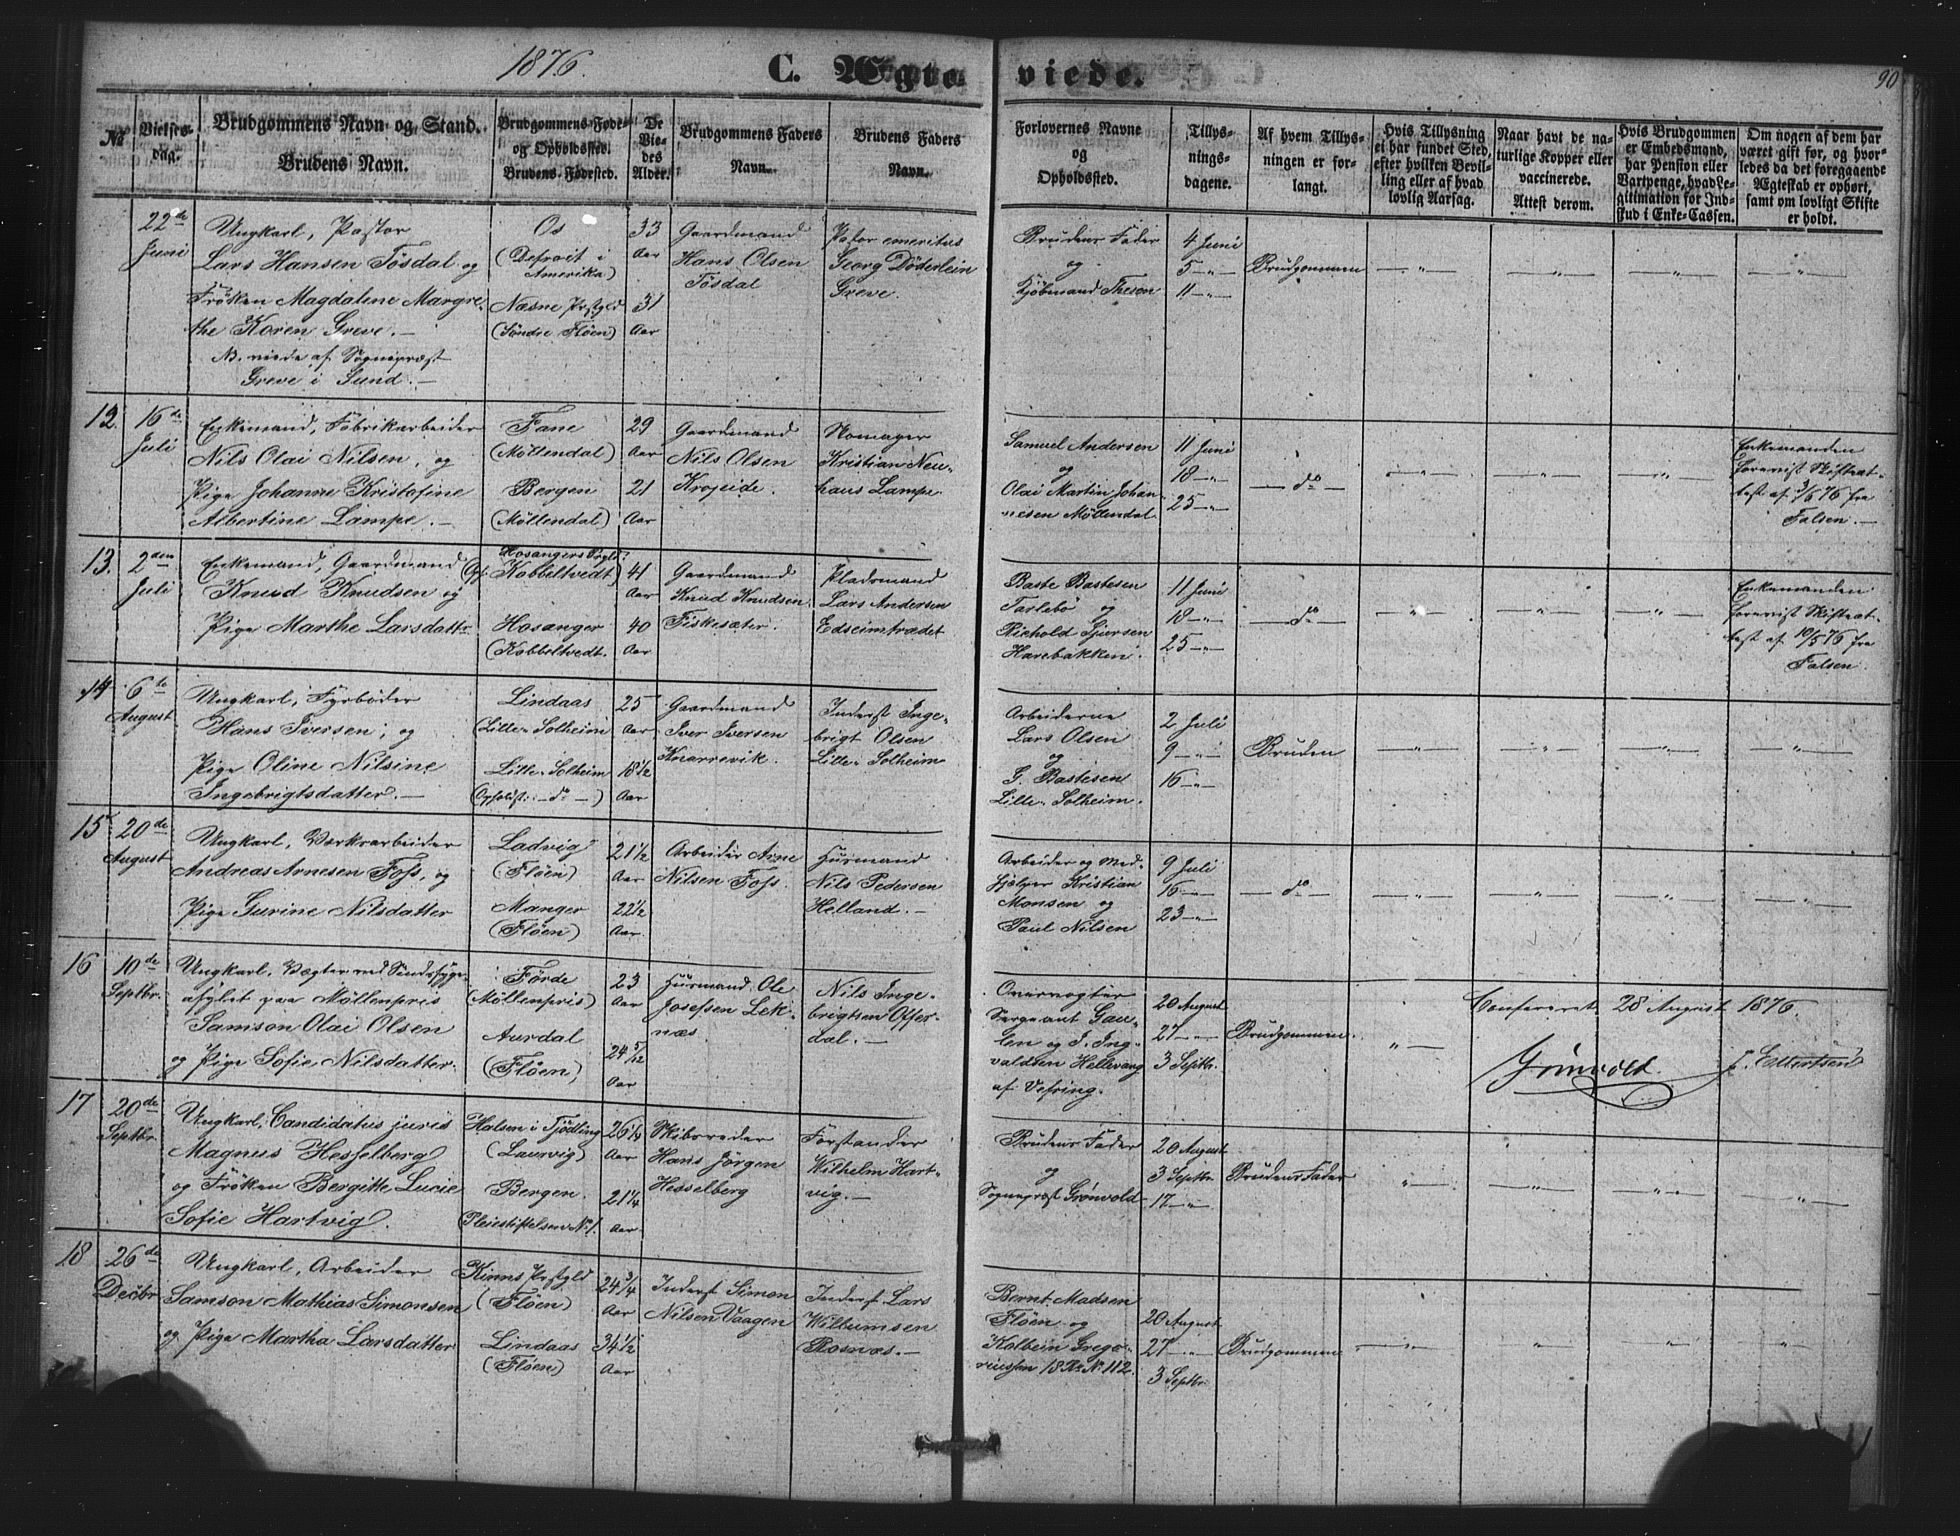 1876.
C. Ægteviede.
90
No
Vielses-
dag.
Brudgommens Navn og Stand.
Brudens Navn.
Brudgommens Føde-
og Opholdssted.
Brudens Fødested.
De
Vie-
des
Alder.
Brudgommens Faders
Navn.
Brudens Faders
Navn.
Forlovernes Navne
og
Opholdssted.
Tillys-
nings-
dagene.
Af hvem Tillys-
ningen er for-
langt.
Hvis Tillysning
ei har fundet Sted,
efter hvilken Bevil-
ling eller af hvad
lovlig Aarsag.
Naar havt de na-
turlige Kopper eller
vaccinerede.
Attest derom.
Hvis Brudgommen
er Embedsmand,
har Pension eller
Vartpenge, hvad Le-
gitimation for Ind-
skud i Enke-Cassen.
Om nogen af dem har
været gift før, og hvor-
ledes da det foregaaende
Ægteskab er ophørt,
samt om lovligt Skifte
er holdt.
22de
Juni
Ungkarl, Pastor
Lars Hansen Tösdal og
Fröken Magdalene Margre-
the Koren Greve. —
NB. viede af Sognepræst
Greve i Sund. —
Os
(Detroit i
Amerika)
Næsne Præstgld
(Søndre Fløen)
33
Aar
31
Aar
Gaardmand
Hans Olsen
Tösdal
Pastor emeritus
Georg Döderlein
Greve
Brudens Fader
og
Kjøbmand Thesen
4 Juni
5 — " —
11 — " —
Brudgommen
12.
16de
Juli
Enkemand, Fabrikarbeider
Nils Olai Nilsen, og
Pige Johanne Kristofine
Albertine Lampe. —
Fane
(Möllendal)
Bergen
(Möllendal)
29
Aar
21
Aar
Gaardmand
Nils Olsen
Krojeide.
Stomager
Kristian Neu-
haus Lampe
Samuel Andersen
og
Olai Martin Johan-
nesen Möllendal
11 Juni
18 — " —
25 — " —
— do —
Enkemanden
forevist Skifteat-
test af 3/6 76 fra
Falsen. —
13.
2den
Juli
Enkemand, Gaardmand
Knud Knudsen og
Pige Marthe Larsdatter
Hosangers Prgld
(Opf. Kobbeltvedt)
Hosanger
(Kobbeltvedt.
41
Aar
40
Aar
Gaardmand
Knud Knudsen
Fiskesæter.
Pladsmand
Lars Andersen
Edseimtrædet
Baste Bastesen
Tarlebö og
Richold Sjursen
Harebakken.
11 Juni
18 — " —
25 — " —
— do —
Enkemanden
forevist Skifteat-
test af 10/5 76 fra
Falsen.
14
6te
August
Ungkarl, Fyrböder
Hans Iversen, og
Pige Oline Nilsine
Ingebrigtsdatter. —
Lindaas
(Lille-Solheim
Lille-Solheim
(Opholdst: — do —)
25
Aar
18 1/2
Aar
Gaardmand
Iver Iversen
Knarrevik.
Inderst Inge-
brigt Olsen
Lille-Solheim
Arbeiderne
Lars Olsen
og
G. Bastesen
Lille-Solheim.
2 Juli
9 — " —
16 — " —
Bruden
15
20de
August
Ungkarl, Værksarbeider
Andreas Arnesen Foss, og
Pige Gurine Nilsdatter
Ladvig
(Flöen)
Manger
(Flöen)
21 1/2
Aar
22 1/2
Aar
Arbeider Arne
Nilsen Foss.
Husmand
Nils Pedersen
Helland. —
Arbeider og Med-
hjælper Kristian
Monsen og
Paul Nilsen
9 Juli
16 — " —
23 — " —
— do —
16
10de
Septbr.
Ungkarl, Vægter ved Sindssyge-
asylet paa Möllenpris
Samson Olai Olsen
og Pige Sofie Nilsdatter.
Förde
(Möllenpris)
Aurdal
(Flöen)
23
Aar
24 5/12
Aar
Husmand Ole
Josefsen Lek-
næs
Nils Inge-
brigtsen Offer-
dal. —
Overvogter
Sergeant Gau-
len og I. Ing-
valdsen Hellevang
af Vefring.
20 August
27 — " —
3 Septbr.
Brudgommen
Confereret 28 August 1876.
Grönvold.
J. Ellertsen
17
20de
Septbr.
Ungkarl, Candidatus juris
Magnus Hesselberg
og Fröken Bergitte Lucie
Sofie Hartvig.
Halsen i Tjödling
(Laurvig)
Bergen.
Pleiestiftelsen No 1.
26 1/4
Aar
21 1/4
Aar
Skibsreder
Hans Jörgen
Hesselberg
Forstander
Wilhelm Hart-
vig. —
Brudens Fader
og
Sognepræst Grönvold
20 August
3 Septbr.
17 — " —
Brudens Fader
18
26de
Decbr
Ungkarl, Arbeider
Samson Mathias Simonsen
og Pige Martha Larsdatter
Kinns Præstgld
(Flöen)
Lindaas
(Flöen)
24 3/4
Aar
34 1/2
Aar
Inderst Simon
Nilsen Vaagen
Inderst Lars
Willumsen
Rosnæs. —
Bernt Madsen
Flöen og
Kolbein Grego-
riussen 18 Rd. No 112.
20 August
27 — " —
3 Septbr.
Brudgommen